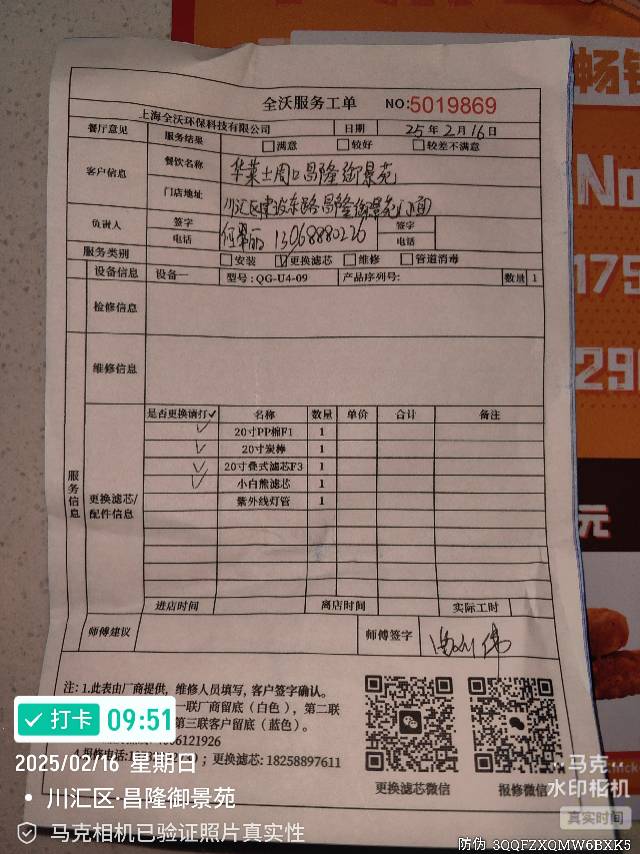 全沃服务工单 NO:5019869
上海全沃环保科技有限公司 日期 25年2月16日
餐厅意见 服务结果 满意 较好 较差不满意
客户信息 餐饮名称 华莱士周口昌隆御景苑
门店地址 川汇区建设东路昌隆御景苑门面
负责人 签字 签字
电话 13068880226 电话
服务类别 安装 更换滤芯 维修 管道消毒
设备信息 设备一 型号:QG-U4-09 产品序列号: 数量 1
检修信息
维修信息
服务信息
更换滤芯/配件信息
是否更换请打✓ 名称 数量 单价 合计 备注
✓ 20寸PP棉F1 1
✓ 20寸炭棒 1
✓ 20寸叠式滤芯F3 1
✓ 小白熊滤芯 1
紫外线灯管 1
进店时间 离店时间 实际工时
师傅建议 师傅签字
注:1.此表由厂商提供,维修人员填写,客户签字确认。
一联厂商留底(白色),第二联
第三联客户留底(蓝色)。
6121926
4.报修电话: ;更换滤芯:18258897611
更换滤芯微信 报修微信
畅
No
175
290
元
打卡 09:51
2025/02/16 星期日
川汇区·昌隆御景苑
马克相机已验证照片真实性
马克
水印相机
真实时间
防伪 3QQFZXQMW6BXK5